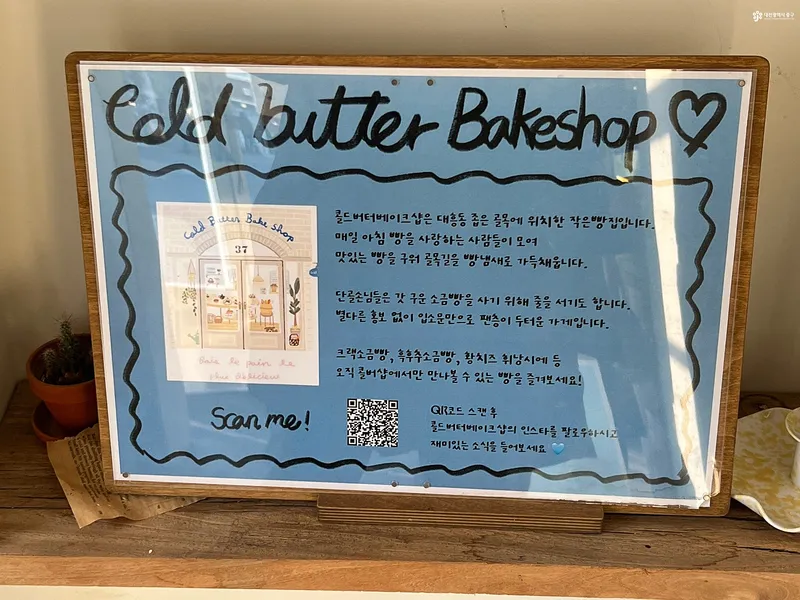 대전광역시 중구
Cold butter Bakeshop
Cold Butter Bake Shop
37
콜드버터베이크샵은 대흥동 좁은 골목에 위치한 작은빵집입니다.
매일 아침 빵을 사랑하는 사람들이 모여
맛있는 빵을 구워 골목길을 빵냄새로 가득채웁니다.
단골손님들은 갓 구운 소금빵을 사기 위해 줄을 서기도 합니다.
별다른 홍보 없이 입소문만으로 팬층이 두터운 가게입니다.
크랙소금빵, 흑후추소금빵, 황치즈 휘낭시에 등
오직 콜버샵에서만 만나볼 수 있는 빵을 즐겨보세요!
Scan me!
QR코드 스캔 후
콜드버터베이크샵의 인스타를 팔로우하시고
재미있는 소식을 들어보세요